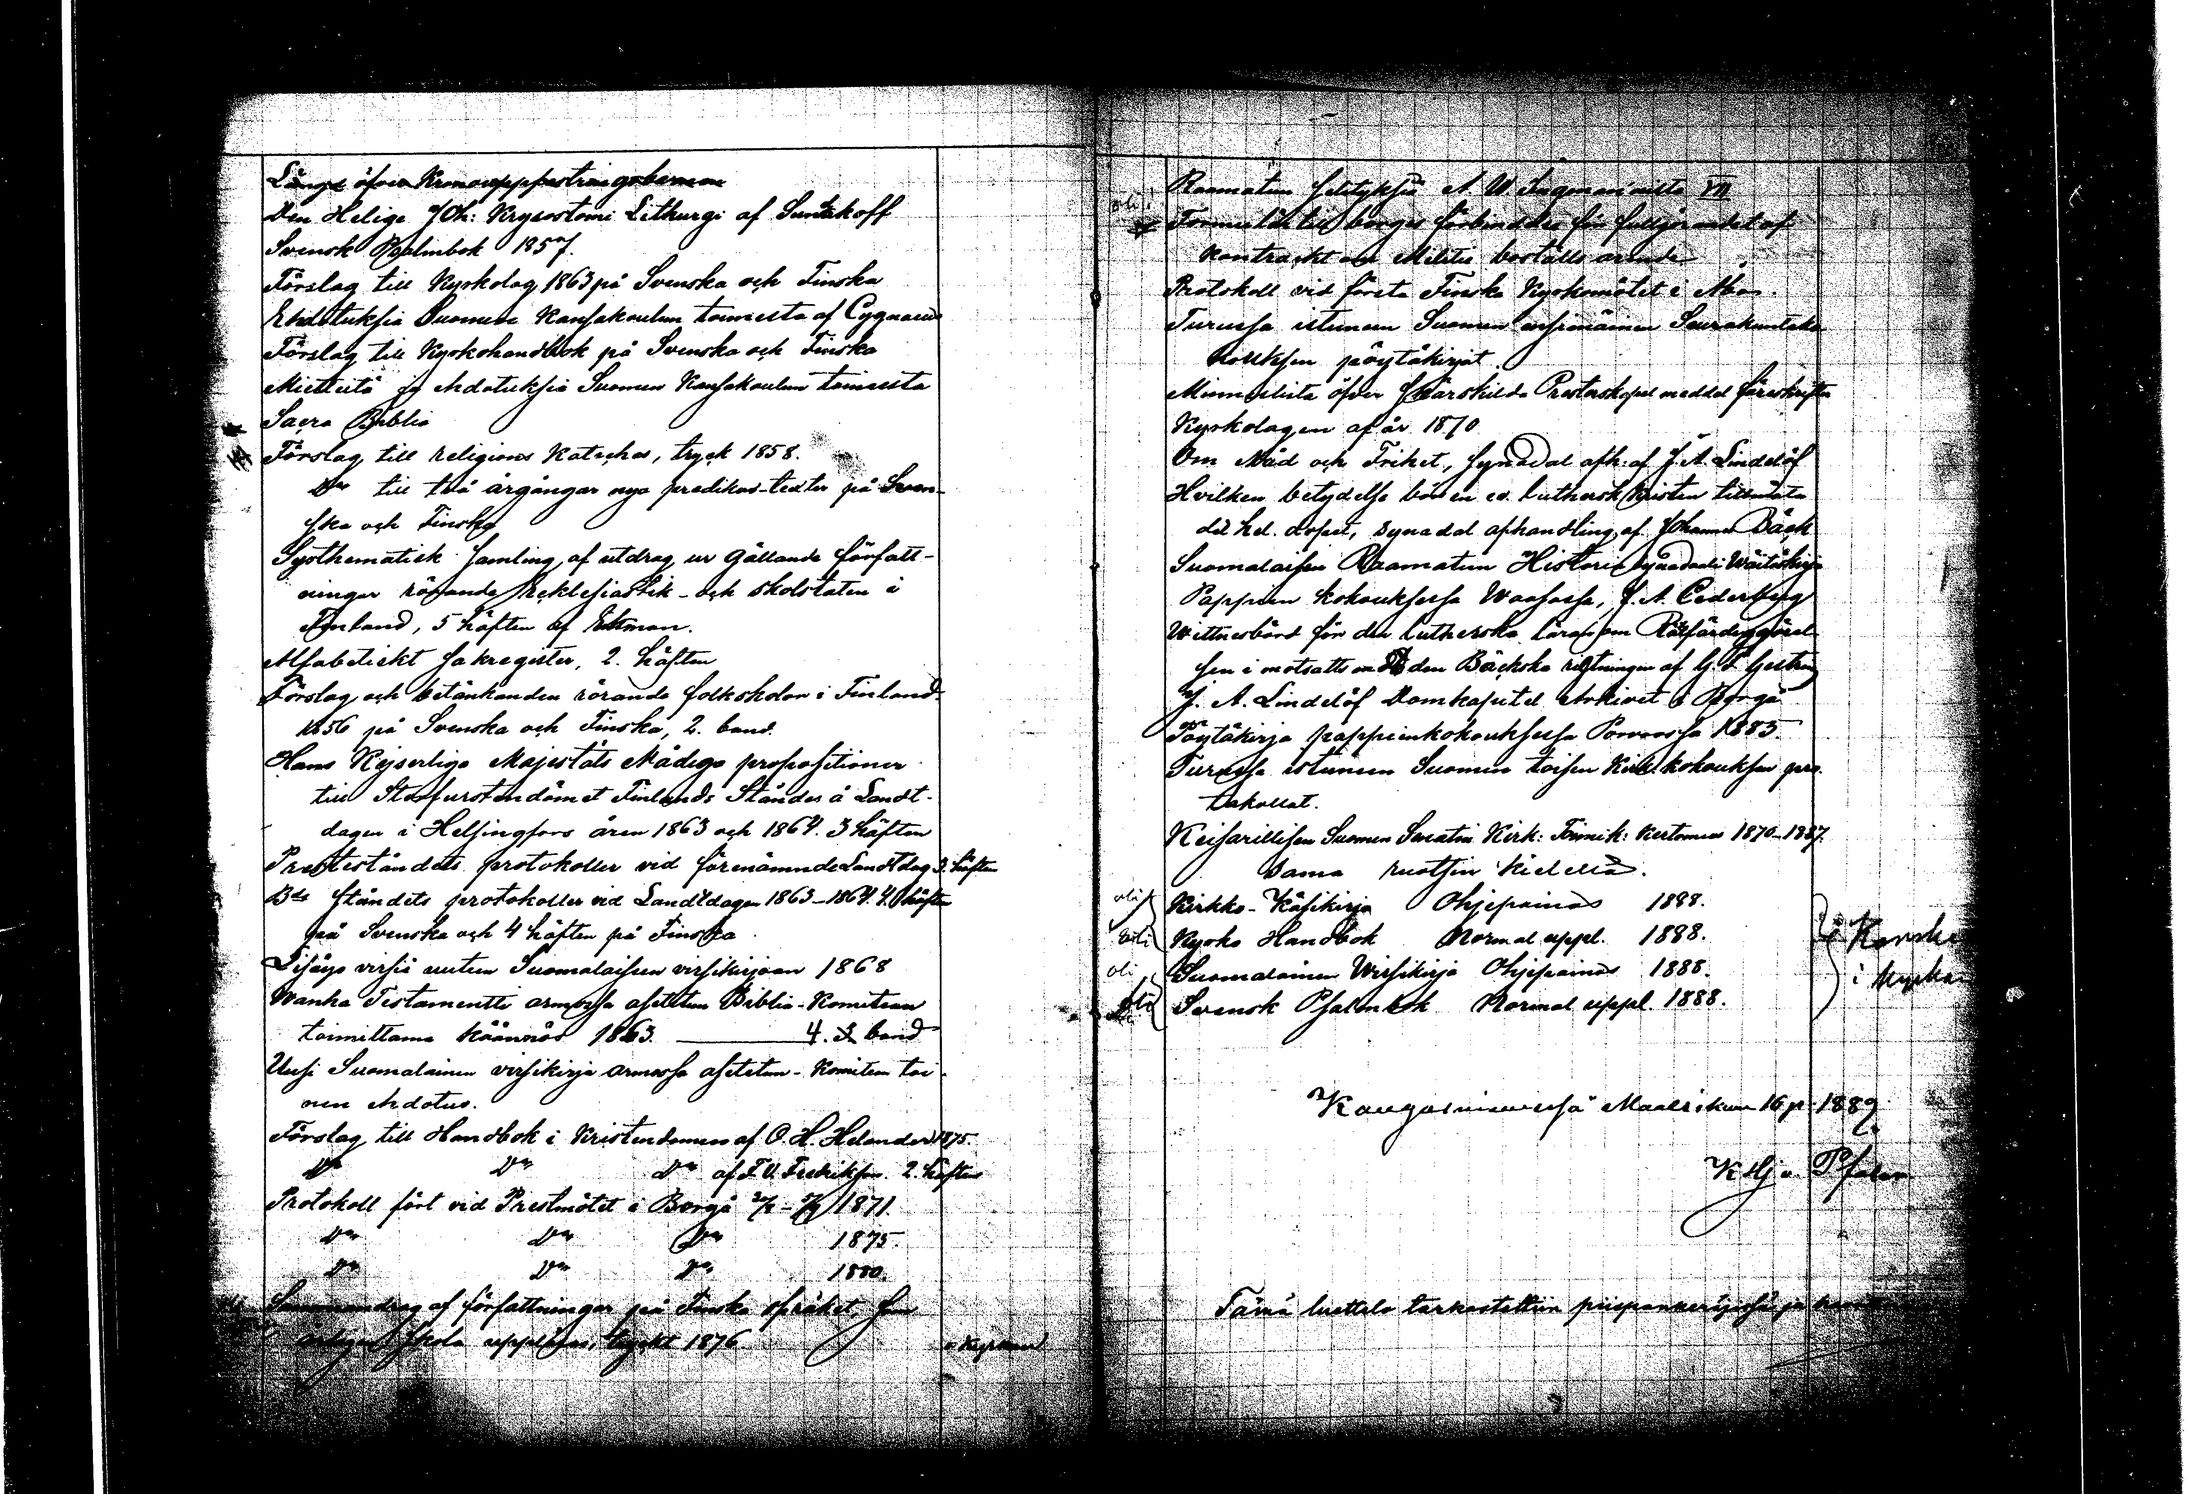 Längd öfver Kronouppbörds
Den Helige Joh: Krysostomi Lithurgi af Suntzkoff
Svensk Psalmbok 1857.
Förslag till Kyrkolag 1863 på Svenska och Finska
Ehdotuksia Suomen Kansakoulun toimesta af Cygnaeus
Förslag till Kyrkohandbok på Svenska och Finska
Mietteitä ja ehdotuksia Suomen Kansakoulun toimesta
Sacra Biblia
Förslag till religions Kateches, tryck 1858.
D:o till två årgångar nya predikas-texter på Sven-
ska och Finska
Systhematisk samling af utdrag ur gällande författ-
ningar rörande Ecklesiastik- och Skolstaten i
Finland, 5 häften af Ekman.
Alfabetiskt sakregister, 2. häften
Förslag och betänkanden rörande folkskolan i Finland
1856 på Svenska och Finska, 2. band.
Hans Kejserliga Majestäts Nådiga propositioner
till Storfurstendömet Finlands Ständer å Landt-
dagen i Helsingfors åren 1863 och 1864. 3 häften
Presteståndets protokoller vid förenämnde Landtdag 3. häften
B:de Ståndets protokoller vid Landtdagen 1863-1864. 4. häften
på Svenska och 4 häften på Finska
Lisäys virsiä uuteen Suomalaiseen virsikirjaan 1868
Wanha Testamentti armossa asetetun Biblia-Komitean
toimittama käännös 1863. 4. band
Uusi Suomalainen virsikirja armossa asetetun-Komitean toi-
nen ehdotus.
Förslag till Handbok i Kristendomen af O. H. Helander 1875.
D:o D:o D:o af F. V. Fredrikson. 2. häften
Protokoll fört vid Prestmötet i Borgå 1871.
D:o D:o D:o 1875.
D:o D:o D:o 1880.
Sammandrag af författningar på Finska språket som
årligen skola uppläsas, tryckt 1876.
i kyrkan
Raamatun selityksiä A. W. Ingmanista VII
oli
Formulär till borges förbindelse för fullgörandet af
kontrakt om Militie boställs arende
Protokoll vid första Finska Kyrkomötet i Åbo.
Turussa istuneen Suomen ensimäinen Seurakuntako
kouksen pöytäkirjat.
Minneslista öfver särskilda Presterskapet meddel föreskrifter
Kyrkolagen af år 1870
Om Nåd och Frihet, synodal afh: af J. A. Lindelöf
Hvilken betydelse bör en ev. luthersk Kristen tillmäta
det hel. dopet, synodal afhandling af Johannes Bäck
Suomalaisen Raamatun Historia synodaali Wäitöskirja
Pappein kokouksessa Waasassa, J. A. Cederberg
Wittnesbörd för den lutherska läran om Rätfärdiggörel-
sen i motsatts mot den Bäckska riktningen af
J. A. Lindelöf Domkapitel Arkivet i Borgå
Pöytäkirja pappienkokouksessa Porvoossa 1885.
Turussa istuneen Suomen toisen Kirk. kokouksen pro-
tokollat.
Keisarillisen Suomen Senatin Kirk: Toimik: kertomus 1870-1887.
Sama ruotsin kielellä.
oli Kirkko-Käsikirja Ohjepainos 1888.
oli Kyrko Handbok Normal uppl. 1888.
oli Suomalainen Wirsikirja Ohjepainos 1888.
oli Svensk Psalmbok Normal uppl. 1888.
i kyrkan
Kangasniemessä Maaliskuun 16 p. 1889.
Tämä luettelo tarkastettiin piispankertjassa ja